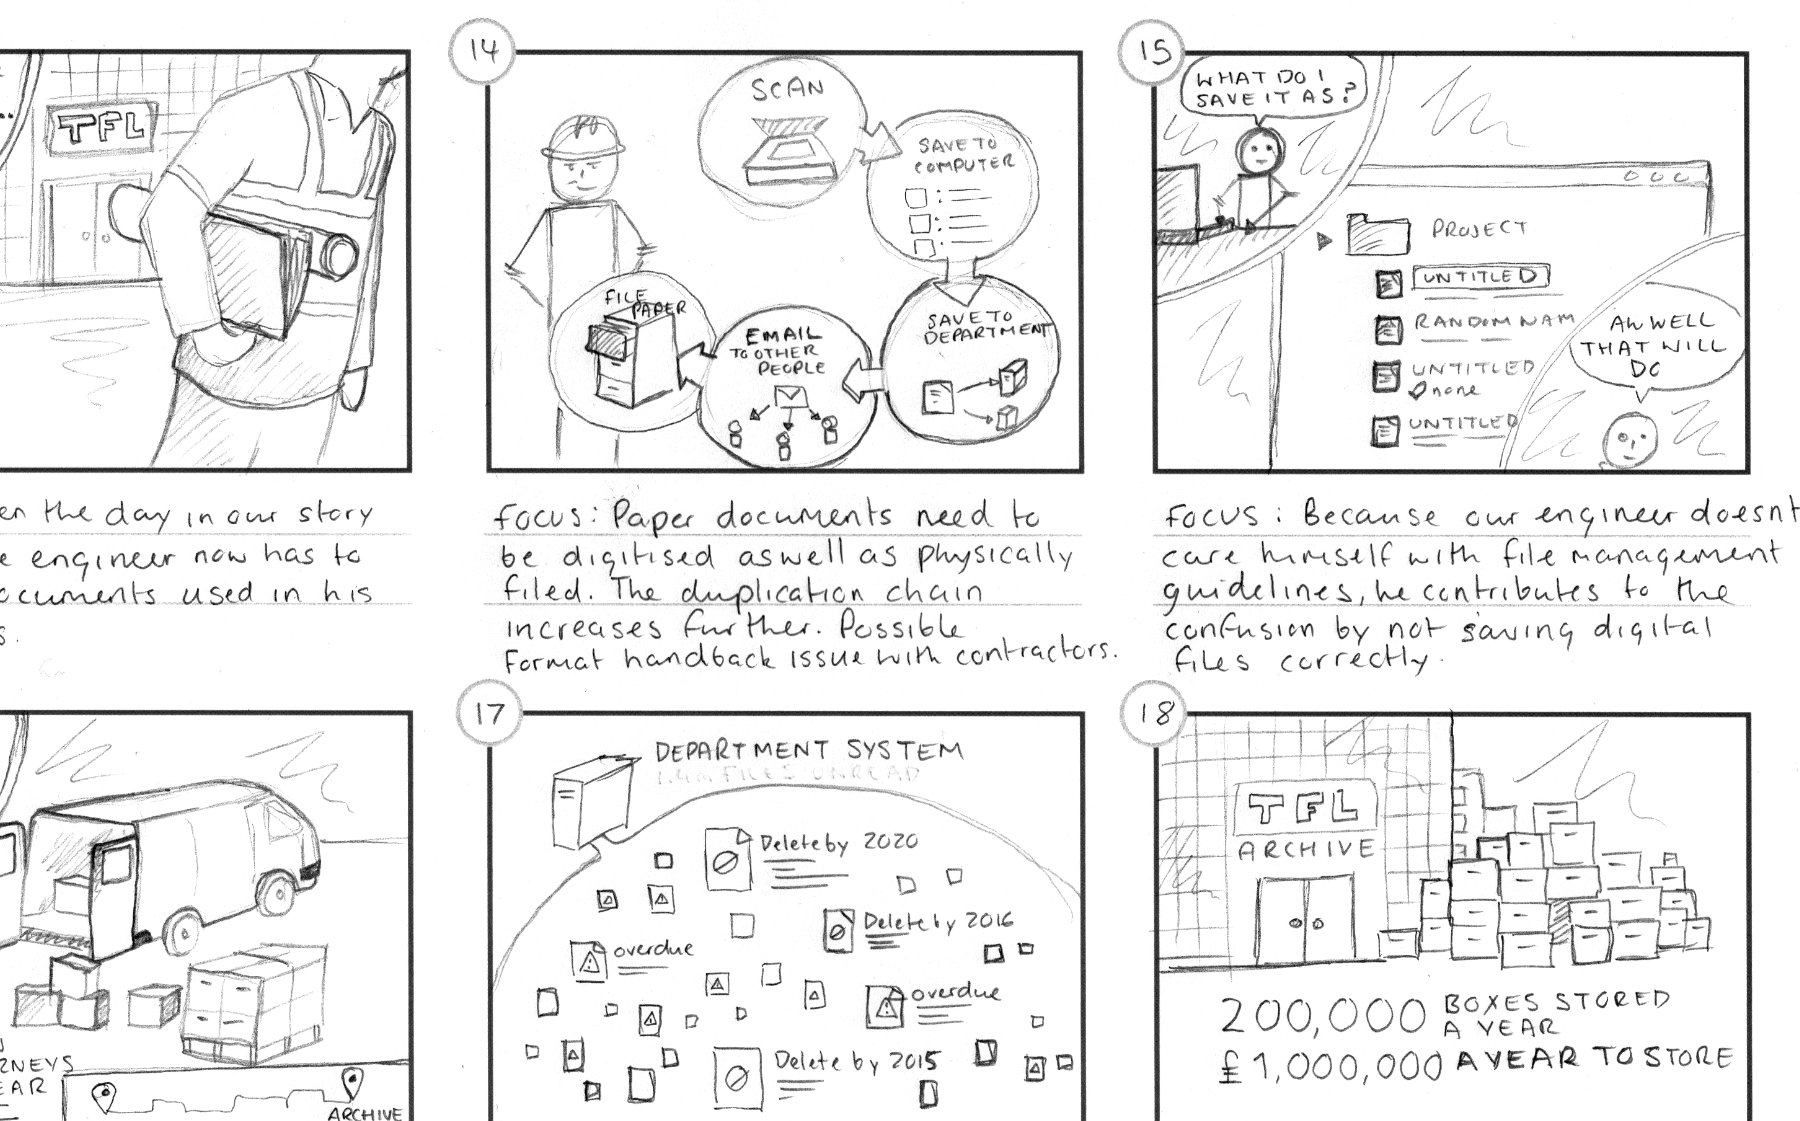 TFL
en the day in our story
e engineer now has to
ocuments used in his
s.
14
SCAN
SAVE TO
COMPUTER
SAVE TO
DEPARTMENT
EMAIL
TO OTHER
PEOPLE
FILE
PAPER
focus: Paper documents need to
be digitised aswell as physically
filed. The duplication chain
increases further. Possible
format handback issue with contractors.
15
WHAT DO I
SAVE IT AS?
PROJECT
UNTITLED
RANDOM NAM
UNTITLED
none
UNTITLED
AW WELL
THAT WILL
DO
FOCUS: Because our engineer doesnt
care himself with file management
guidelines, he contributes to the
confusion by not saving digital
files correctly.
RNEYS
EAR
ARCHIVE
17
DEPARTMENT SYSTEM
FILES UNREAD
Delete by 2020
Delete by 2016
overdue
overdue
Delete by 2015
18
TFL
ARCHIVE
200,000 BOXES STORED
A YEAR
£1,000,000 A YEAR TO STORE